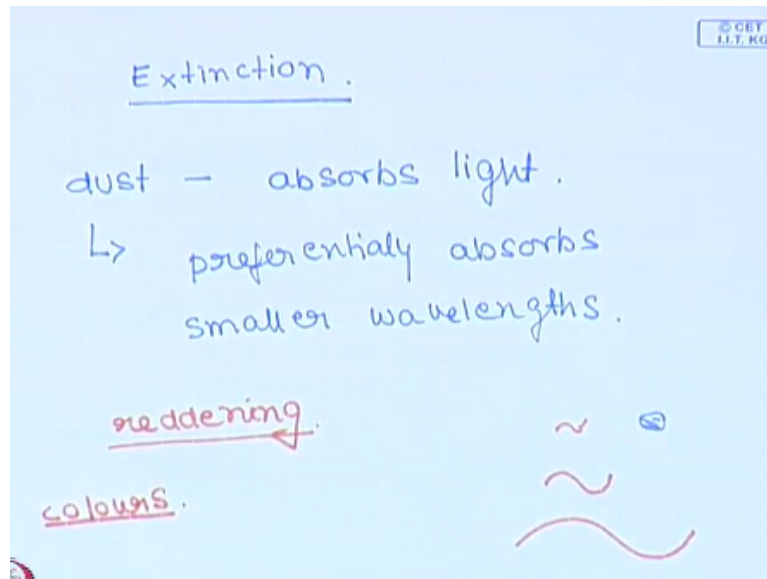 © CET
I.I.T. KG
Extinction.
dust - absorbs light.
↳ preferentialy absorbs
smaller wavelengths.
reddening.
colours.